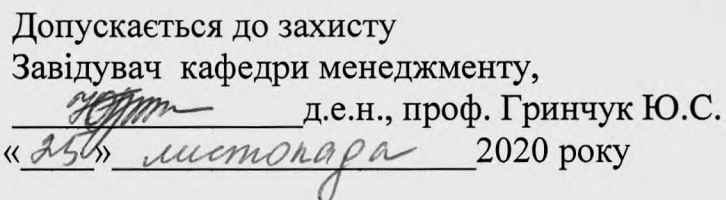 Допускається до захисту
Завідувач кафедри менеджменту,
______________ д.е.н., проф. Гринчук Ю.С.
«25» листопада 2020 року